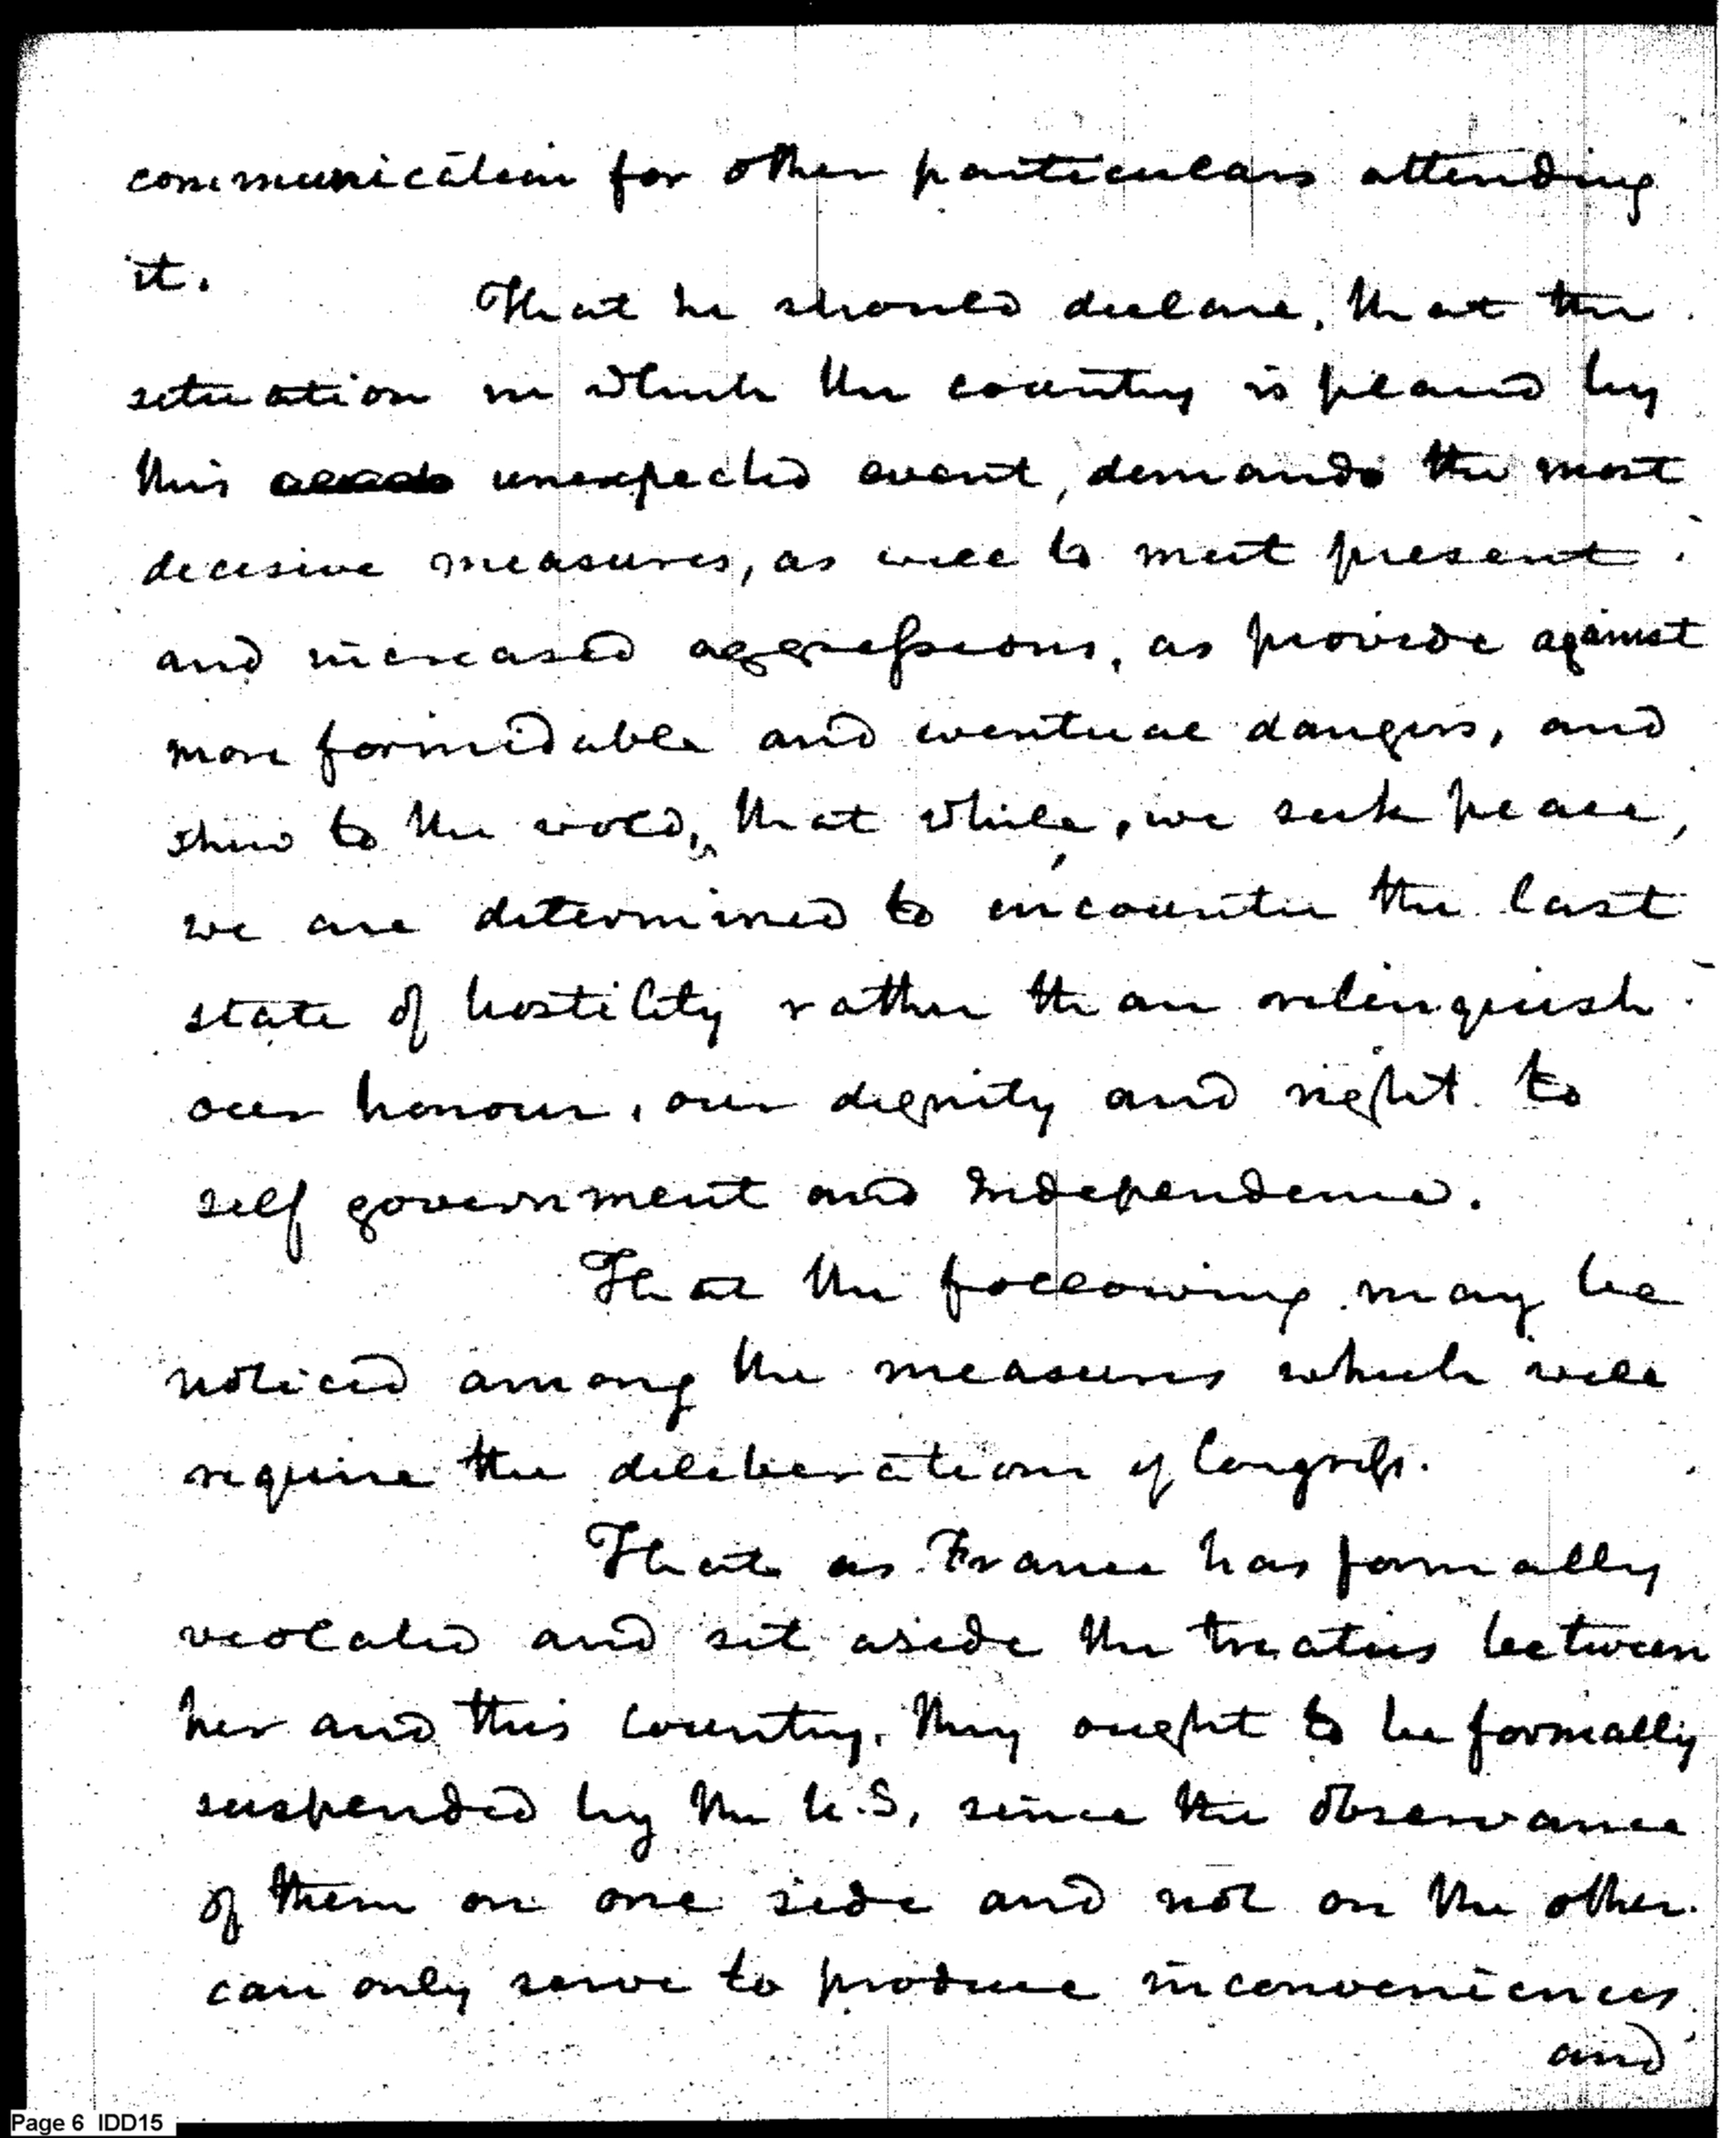 communication for other particulars attending
it.
That he should declare, that the
situation in which the country is placed by
this unexpected event, demands the most
decisive measures, as well to meet present
and increased aggressions, as provide against
more formidable and eventual dangers, and
shew to the wold, that while, we seek peace,
we are determined to encounter the last
state of hostility rather than relinquish
our honour, our dignity and right to
self government and Independence.
That the following may be
noticed among the measures which will
require the deliberations of Congress.
That as France has formally
violated and set aside the treaties between
her and this country, they ought to be formally
suspended by the U.S, since the observance
of them on one side and not on the other
can only serve to produce inconveniences
and
Page 6 IDD15